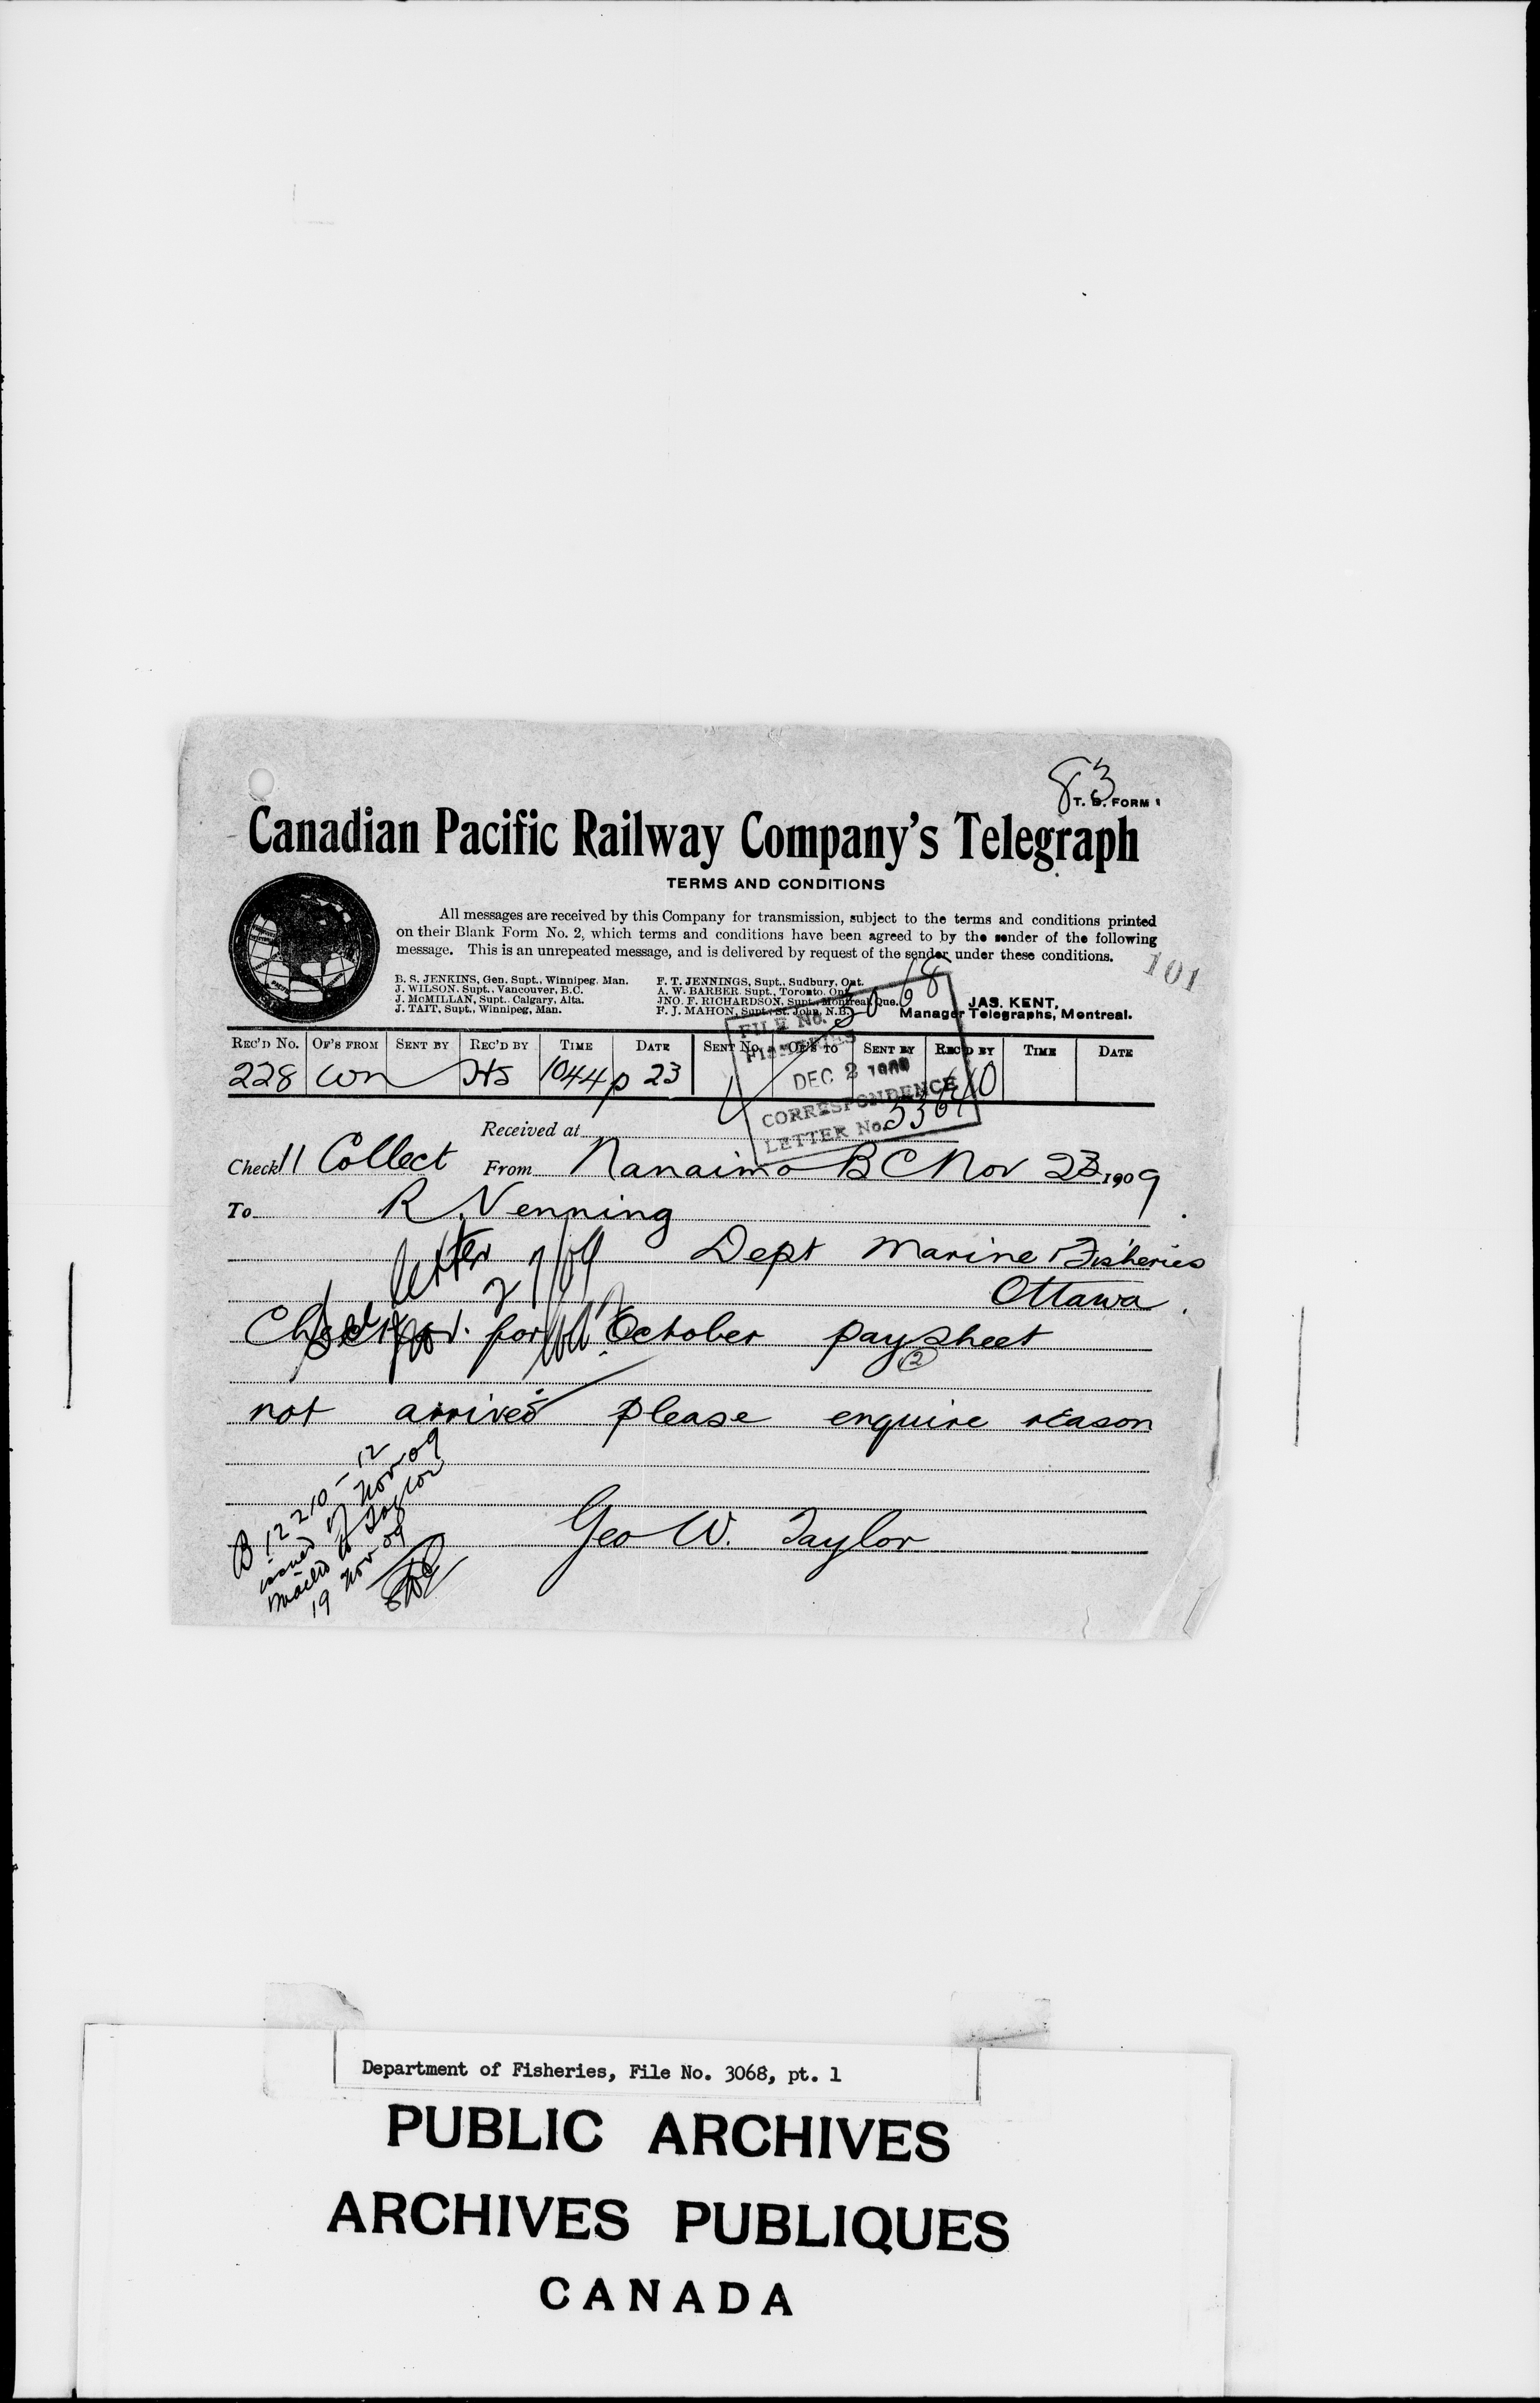 83
T. D. FORM 1
Canadian Pacific Railway Company's Telegraph
TERMS AND CONDITIONS
All messages are received by this Company for transmission, subject to the terms and conditions printed
on their Blank Form No. 2, which terms and conditions have been agreed to by the sender of the following
message. This is an unrepeated message, and is delivered by request of the sender under these conditions.
101
B. S. JENKINS, Gen. Supt., Winnipeg, Man.
J. WILSON, Supt., Vancouver, B.C.
J. McMILLAN, Supt., Calgary, Alta.
J. TAIT, Supt., Winnipeg, Man.
F. T. JENNINGS, Supt., Sudbury, Ont.
A. W. BARBER, Supt., Toronto, Ont.
JNO. F. RICHARDSON, Supt., Montreal, Que.
F. J. MAHON, Supt., St. John, N.B.
JAS. KENT,
Manager Telegraphs, Montreal.
FILE No. 3068
FISHERIES
DEC 2 1909
CORRESPONDENCE
LETTER No.
REC'D No. OF'S FROM SENT BY REC'D BY TIME DATE SENT No. OF'S TO SENT BY REC'D BY TIME DATE
228 Wn HS 1044p 23
Received at
Check 11 Collect From Nanaimo BC Nov 23 1909
To R. Venning
Dept Marine Fisheries
Ottawa
letter
for October pay sheet
2
not arrived please enquire reason
B 12210-12
issued 17 Nov 09
mailed to Taylor
19 Nov 09
Geo W. Taylor
Department of Fisheries, File No. 3068, pt. 1
PUBLIC ARCHIVES
ARCHIVES PUBLIQUES
CANADA